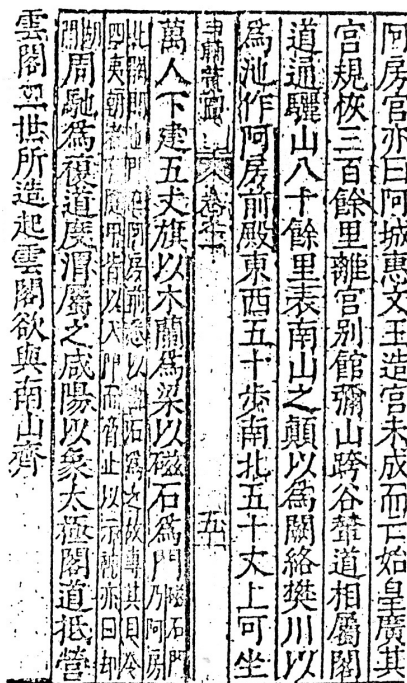 阿房宮亦曰阿城惠文王造宮未成而亡始皇廣其
宮規恢三百餘里離宮別館彌山跨谷輦道相屬閣
道通驪山八十餘里表南山之顛以為闕絡樊川以
為池作阿房前殿東西五十步南北五十丈上可坐
五
萬人下建五丈旗以木蘭為梁以磁石為門磁石門乃阿房
北闕門也門在阿房前悉以磁石為之故專其目令
四夷朝者有入門而脅止以示神亦曰却
胡門周馳為複道度渭屬之咸陽以象太極閣道抵營
雲閣二世所造起雲閣欲與南山齊